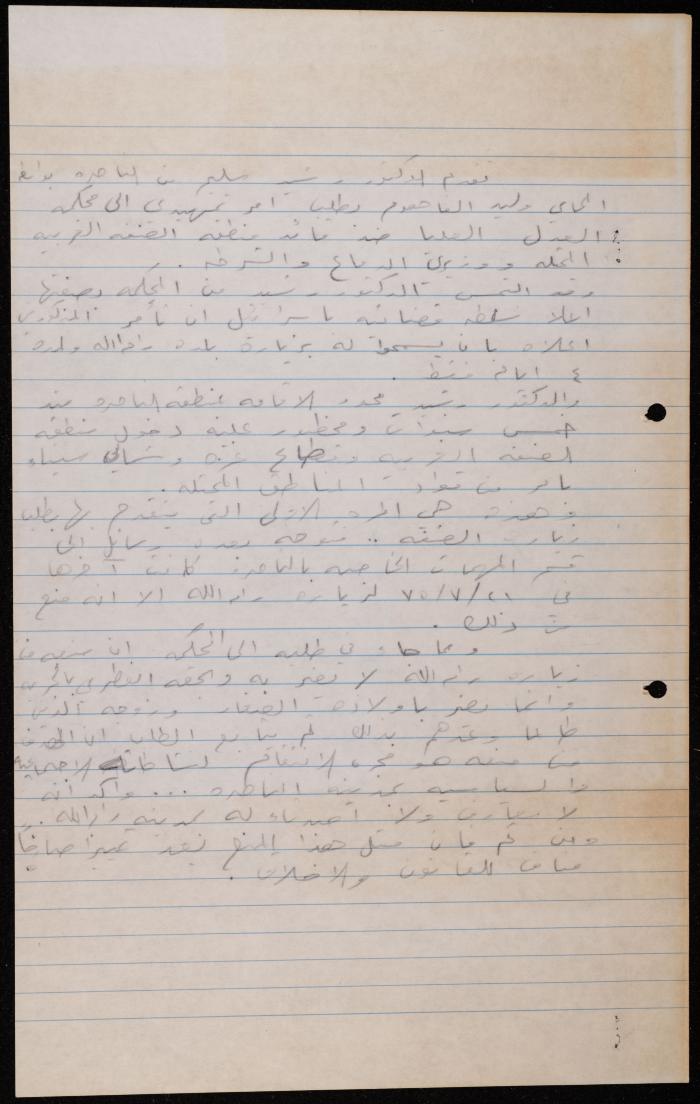 تقدم الدكتور رشيد سليم من الناصره بواسطة
المحامي وليد الفاهوم بطلب امر تمهيدي الى محكمة
العدل العليا ضد قائد منطقه الضفه الغربيه
المحتله ووزيري الدفاع والشرطه .
وقد التمس الدكتور رشيد من المحكمه بصفتها
اعلا سلطه قضائيه باسرائيل ان تأمر المذكورين
اعلاه بان يسمحوا له بزيارة بلده رام الله ولمدة
٤ ايام فقط .
والدكتور رشيد محدد الاقامه بمنطقه الناصره منذ
خمس سنوات ومحظور عليه دخول منطقه
الضفه الغربيه وقطاع غزه وشمالي سيناء
بامر من قوات المناطق المحتله .
وهذه هي المره الاولى التي يتقدم بها بطلب
زيارة الضفه .. فتوجه بعدة رسائل الى
قسم المهمات الخاصه بالناصرة كانت آخرها
في ٢١/٧/٧٥ لزيارة رام الله الا انه منع
من ذلك .
ومما جاء في طلبه الى المحكمه ان منعه من
زيارة رام الله لا يضر به وبحقه الفطري بالحريه
وانما يضر باولاده الصغار وزوجه الذين
طالما وعدهم بذلك ثم يتابع الطلب ان الهدف
من منعه هو مجرد الانتقام لنشاطاته الاجتماعيه
والسياسيه بمدينه الناصره ... واكد انه
لا معارف ولا اصدقاء له بمدينه رام الله ..
ومن ثم فان مثل هذا المنع يعد تمييزا صارخاً
مناف للقانون والاخلاق .